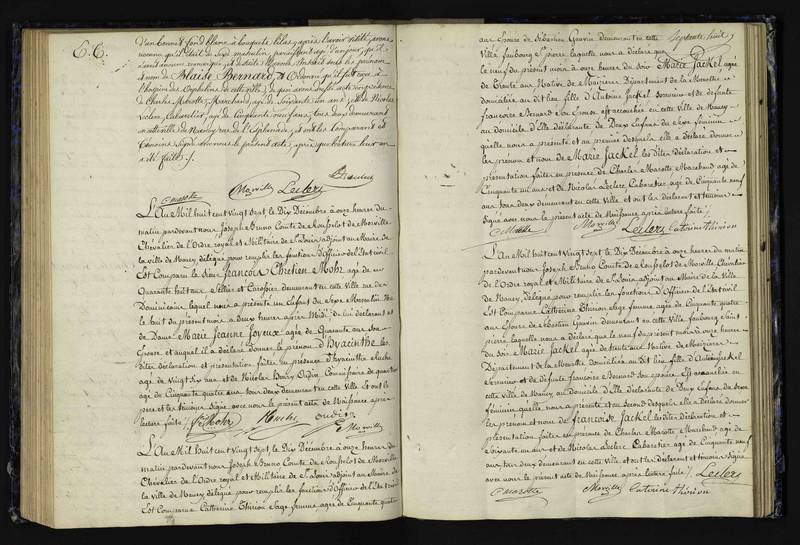 C.C.
d'un bonnet fond blanc à bouquets lilas, après l'avoir visité, avons
reconnu qu'il était du sexe masculin, paraissant âgé d'un jour, qu'il
et nom de Blaise Bernard, et ordonné qu'il fut remis à
l'hospice des Orphelins de cette ville, de quoi avons dressé acte en présence
de Charles Marotte, Marchand, âgé de soixante un ans, et de Nicolas
Leclerc, Cabaretier, âgé de Cinquante neuf ans, tous deux demeurant
en cette ville de Nancy, rue de l'Esplanade, et ont les comparants et
témoins signé avec nous le présent acte, après que lecture leur en
a été faite./.
C Marotte Morville Leclerc
L'An Mil huit cent Vingt Sept le Dix Décembre à onze heures du
matin pardevant nous Joseph Bruno Comte de Rousselot de Morville
Chevalier de l'Ordre royal et Militaire de St Louis adjoint au Maire de
la ville de Nancy délégué pour remplir les fonctions d'Officier de l'Etat civil
Est Comparu le Sieur François Chrétien Mohr âgé de
Quarante huit ans Sellier et Carossier demeurant en cette Ville rue des
Dominicains lequel nous a présenté un Enfant du Sexe Masculin Né
le huit du présent mois à deux heures après Midi, de lui déclarant et
de Dame Marie Jeanne Joyeux âgée de Quarante ans son
Epouse et auquel il a déclaré donner le prénom d'Hyacinthe les
dites déclaration et présentation faites en présence d'hyacinthe Huche
âgé de Vingt Six ans et de Nicolas Henry Oudin Commissaire de quartier
âgé de Cinquante quatre ans tous deux demeurant en cette Ville Et ont le
père et les témoins Signé avec nous le présent acte de Naissance après
lecture faite /. Mohr Huche oudin
Morville
L'An Mil huit cent Vingt Sept le Dix Décembre à onze heures du
matin pardevant nous Joseph Bruno Comte de Rousselot de Morville
Chevalier de l'Ordre royal et Militaire de St Louis adjoint au Maire de
la ville de Nancy délégué pour remplir les fonctions d'Officier de l'Etat civil
Est Comparue Catherine Thirion Sage femme âgée de Cinquante quatre
ans Epouse de Sébastien Gauvin demeurant en cette
Ville faubourg St pierre laquelle nous a déclaré que
le neuf du présent mois à onze heures du soir Marie Jackel âgée
de Trente ans Native de Maizières Département de la Meurthe
domiciliée au dit lieu fille d'Antoine Jackel et de défunte
françoise Bernard Son Epouse est accouchée en cette Ville de Nancy
au domicile d'Elle déclarante de Deux Enfans du Sexe féminin
qu'elle nous a présenté et au premier desquels elle a déclaré donner
les prénom et nom de Marie Jackel les dites Déclaration et
présentation faites en présence de Charles Marotte Marchand âgé de
Cinquante un ans et de Nicolas Leclerc Cabaretier âgé de Cinquante neuf
ans tous deux demeurant en cette Ville et ont les déclarante et témoins
Signé avec nous le présent acte de Naissance après lecture faite /.
C Marotte Morville Leclerc Caterine thirion
L'An Mil huit cent Vingt Sept le Dix Décembre à onze heures du matin
pardevant nous Joseph Bruno Comte de Rousselot de Morville Chevalier
de l'Ordre royal et Militaire de St Louis adjoint au Maire de la Ville
de Nancy délégué pour remplir les fonctions d'Officier de l'Etat civil
Est Comparue Catherine Thirion Sage femme âgée de Cinquante quatre
ans Epouse de Sébastien Gauvin demeurant en cette Ville faubourg Saint
pierre, laquelle nous a déclaré que le neuf du présent mois à onze heures
du soir Marie Jackel âgée de trente ans Native de Maizières
Département de la Meurthe domiciliée au dit lieu fille d'Antoine Jackel
et de défunte françoise Bernard Son épouse Est accouchée en
cette Ville de Nancy au domicile d'Elle déclarante de Deux Enfans du Sexe
féminin qu'elle nous a présenté et au Second desquels elle a déclaré donner
les prénom et nom de francoise Jackel les dites déclaration et
présentation faites en présence de Charles Marotte Marchand âgé de
Soixante un ans et de Nicolas Leclerc Cabaretier âgé de Cinquante neuf
ans tous deux demeurant en cette Ville et ont les déclarante et témoins Signé
avec nous le présent acte de Naissance après lecture faite /. Leclerc
C Marotte Morville Caterine thirion